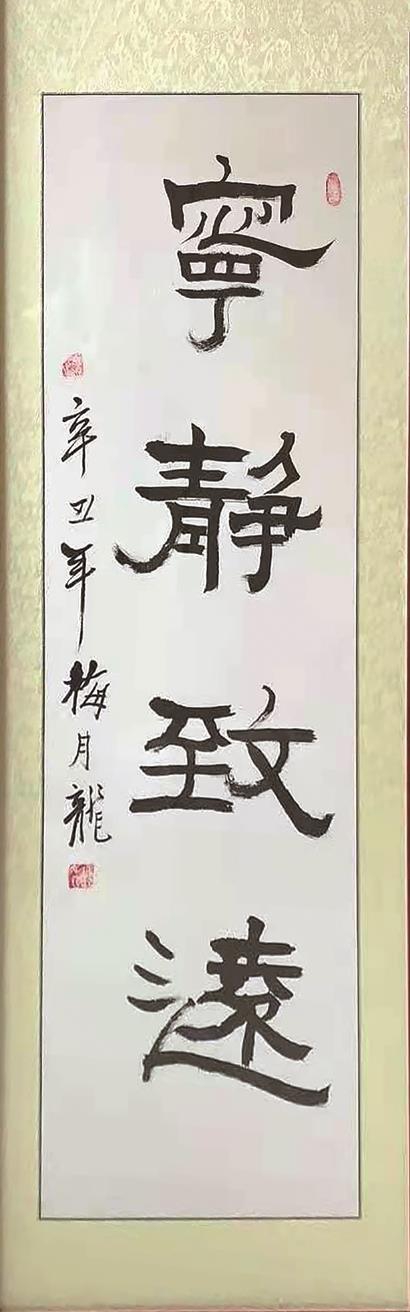 寧靜致遠
辛丑年梅月龍